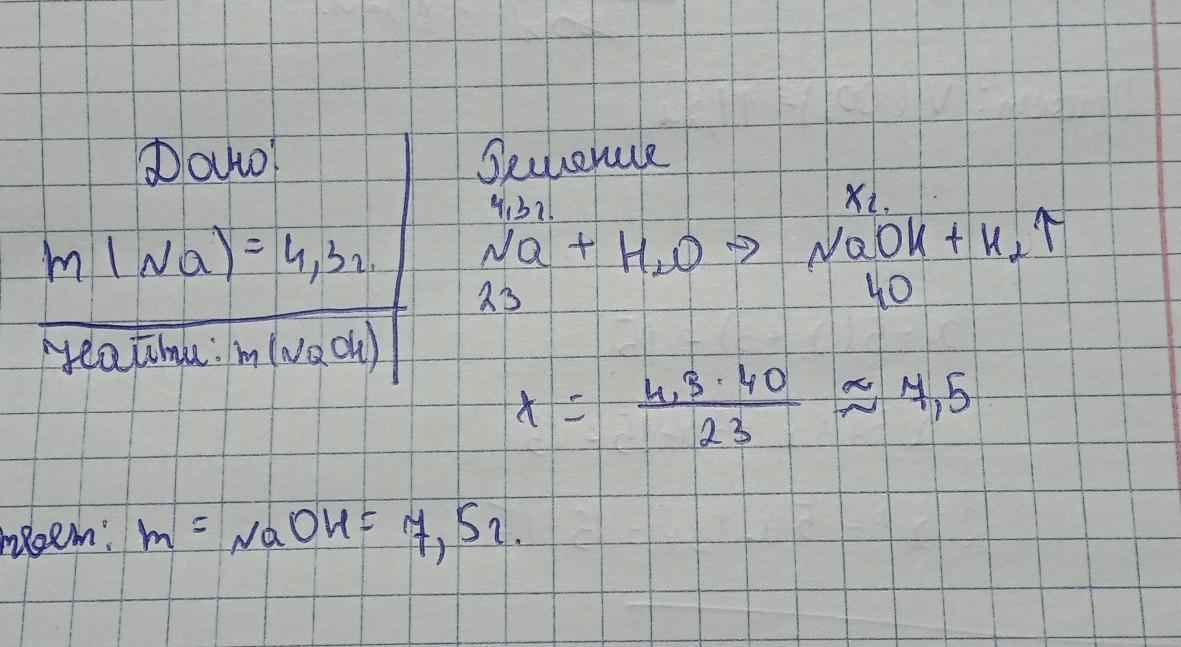 Дано:
m (Na) = 4,3г.
Найти: m(NaOH)
Решение
4,3г. xг.
Na + H₂O → NaOH + H₂↑
23 40
x = 4,3 · 40 / 23 ≈ 7,5
твет: m = NaOH = 7,5г.